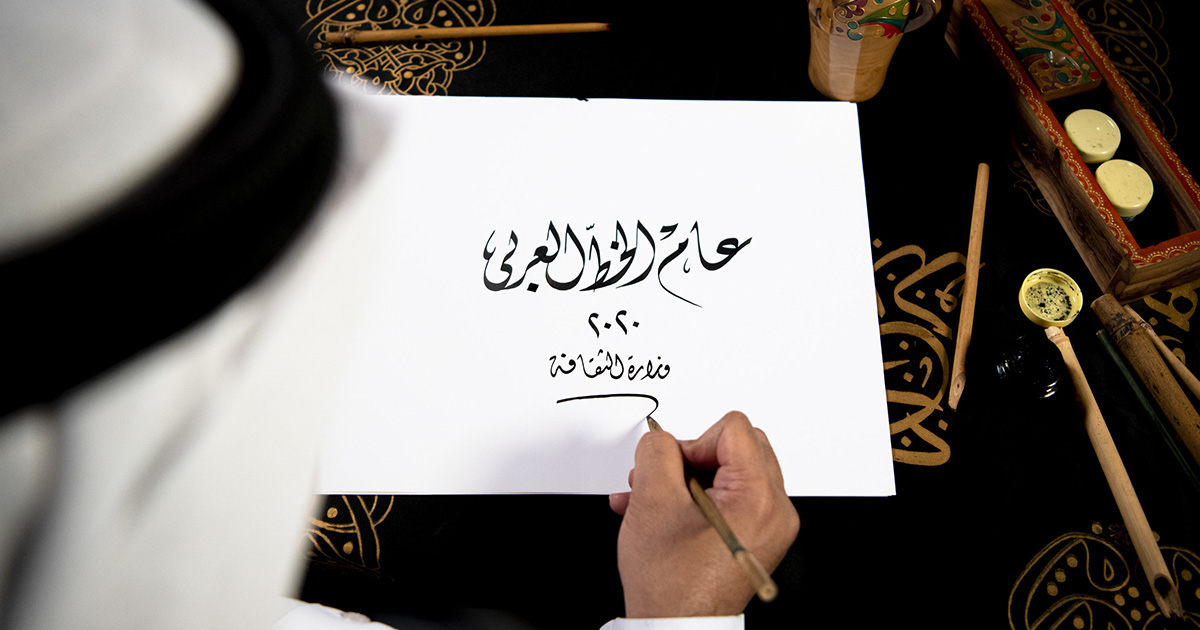 عام الخطّ العربي
٢٠٢٠
وزارة الثقافة